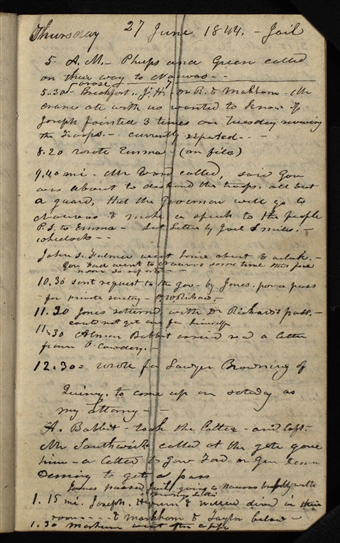 Thursday 27 June 1844. – Jail
5 A.M. – Phelps and Green called
on their way to Nauvoo –
arose
5.30 – Breakfast. J. H. R. & Markham. Mr
Crane ate with us wanted to know if
Joseph fainted 3 times on Tuesday reviewing
the Troops. – currently reported. –
8.20 wrote Emma – (on file)
9,40 mi. – Mr Wood called, said Gov
was about to disband the troops, all but
a guard, that the Governor will go to
Nauvoo & make a speech to the people
P.S. to Emma – sent letter by Joel S Mills. –
John S. Fulmer went home about
Gov had went to Nauvoo some time this
10.30 sent request to the gov. by Jones. for a pass
for private sentry –
11.30 Jones returned with Dr Richards pass. –
could not get one for himself
11.30 Almon Babbit arrived read a letter
from O. Cowdery. –
12.30 wrote for Lawyer Browning of
Quincy. to come up on saturday as
my attorney –
A. Babbit – took the letter – and Capt.
Mr Southwick called at the gate gave
him – a letter to Gov Ford or Gen
Deming to get a pass
Jones passed
1.15 mi. Joseph. Hyrum & Willard dined in their
room – & Markham & Taylor below –
1.30 Markham went